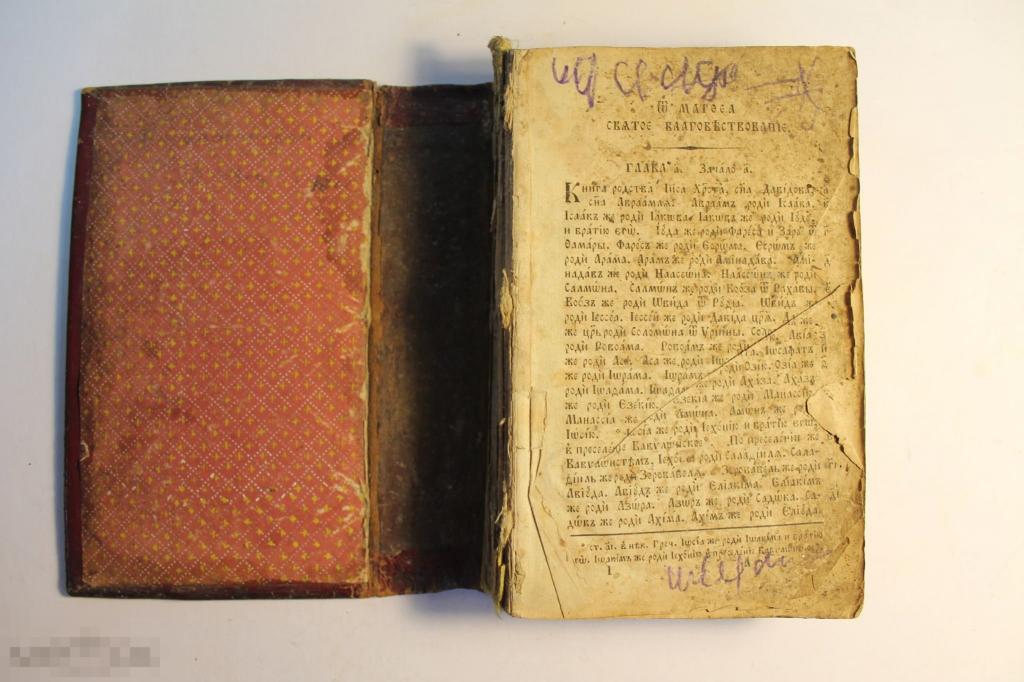 Ѿ МАТѲЕА
СВѦТОЕ БЛАГОВѢСТВОВАНІЕ.
ГЛАВА а҃. Зача́ло а҃.
Кни́га родства̀ І҆и҃са Хр҃та̀, сн҃а Дави́дова,
сн҃а А҆враа́млѧ: А҆враа́мъ родѝ І҆саа́ка.
І҆саа́къ же родѝ І҆а́кѡва. І҆а́кѡвъ же родѝ І҆ꙋ́дꙋ
и҆ бра́тїю є҆гѡ̀. І҆ꙋ́да же родѝ Фаре́са и҆ За́рꙋ ѿ
Ѳама́ры. Фаре́съ же родѝ Е҆срѡ́ма. Е҆срѡ́мъ же
родѝ А҆ра́ма. А҆ра́мъ же родѝ А҆мїнада́ва. А҆мї-
нада́въ же родѝ Наассѡ́на. Наассѡ́нъ же родѝ
Салмѡ́на. Салмѡ́нъ же родѝ Воо́за ѿ Раха́вы.
Воо́зъ же родѝ Ѡ҆ви́да ѿ Рꙋ́ѳы. Ѡ҆ви́дъ же
родѝ І҆ессе́а. І҆ессе́й же родѝ Даві́да цр҃ѧ̀.
же цр҃ь родѝ Соломѡ́на ѿ Оу҆рі́ины.
родѝ Ровоа́ма. Ровоа́мъ же родѝ А҆ві́а
же родѝ А҆́сꙋ. А҆́са же родѝ І҆ѡсафа́тъ
же родѝ І҆ѡра́ма. І҆ѡра́мъ же родѝ Ѻ҆зі́ю. Ѻ҆зі́а же
родѝ І҆ѡаѳа́ма. же родѝ А҆ха́за. А҆ха́зъ
же родѝ Е҆зекі́ю. Е҆зекі́а же родѝ Манассі́ю.
Манассі́а же родѝ А҆мѡ́на. А҆мѡ́нъ же родѝ
І҆ѡсі́ю. І҆ѡсі́а же родѝ І҆ехо́нїю и҆ бра́тїю є҆гѡ̀,
въ преселе́нїе Вавѷлѡ́нское. По преселе́нїи же
Вавѷлѡ́нстѣмъ, І҆ехо́нїа родѝ Салаѳі́илѧ. Сала-
ѳі́иль же родѝ Зорова́велѧ. Зорова́вель же родѝ
А҆вїꙋ́да. А҆вїꙋ́дъ же родѝ Е҆лїакі́ма. Е҆лїакі́мъ
же родѝ А҆зѡ́ра. А҆зѡ́ръ же родѝ Садѡ́ка. Са-
дѡ́къ же родѝ А҆хі́ма. А҆хі́мъ же родѝ Е҆лїꙋ́да.
* ст. а҃і. в нѣк. Греч. І҆ѡсі́а же родѝ І҆ѡакі́ма и҆ бра́тїю
є҆гѡ̀. І҆ѡакі́мъ же родѝ І҆ехо́нїю в преселе́нїе Вавѷлѡ́нское
1